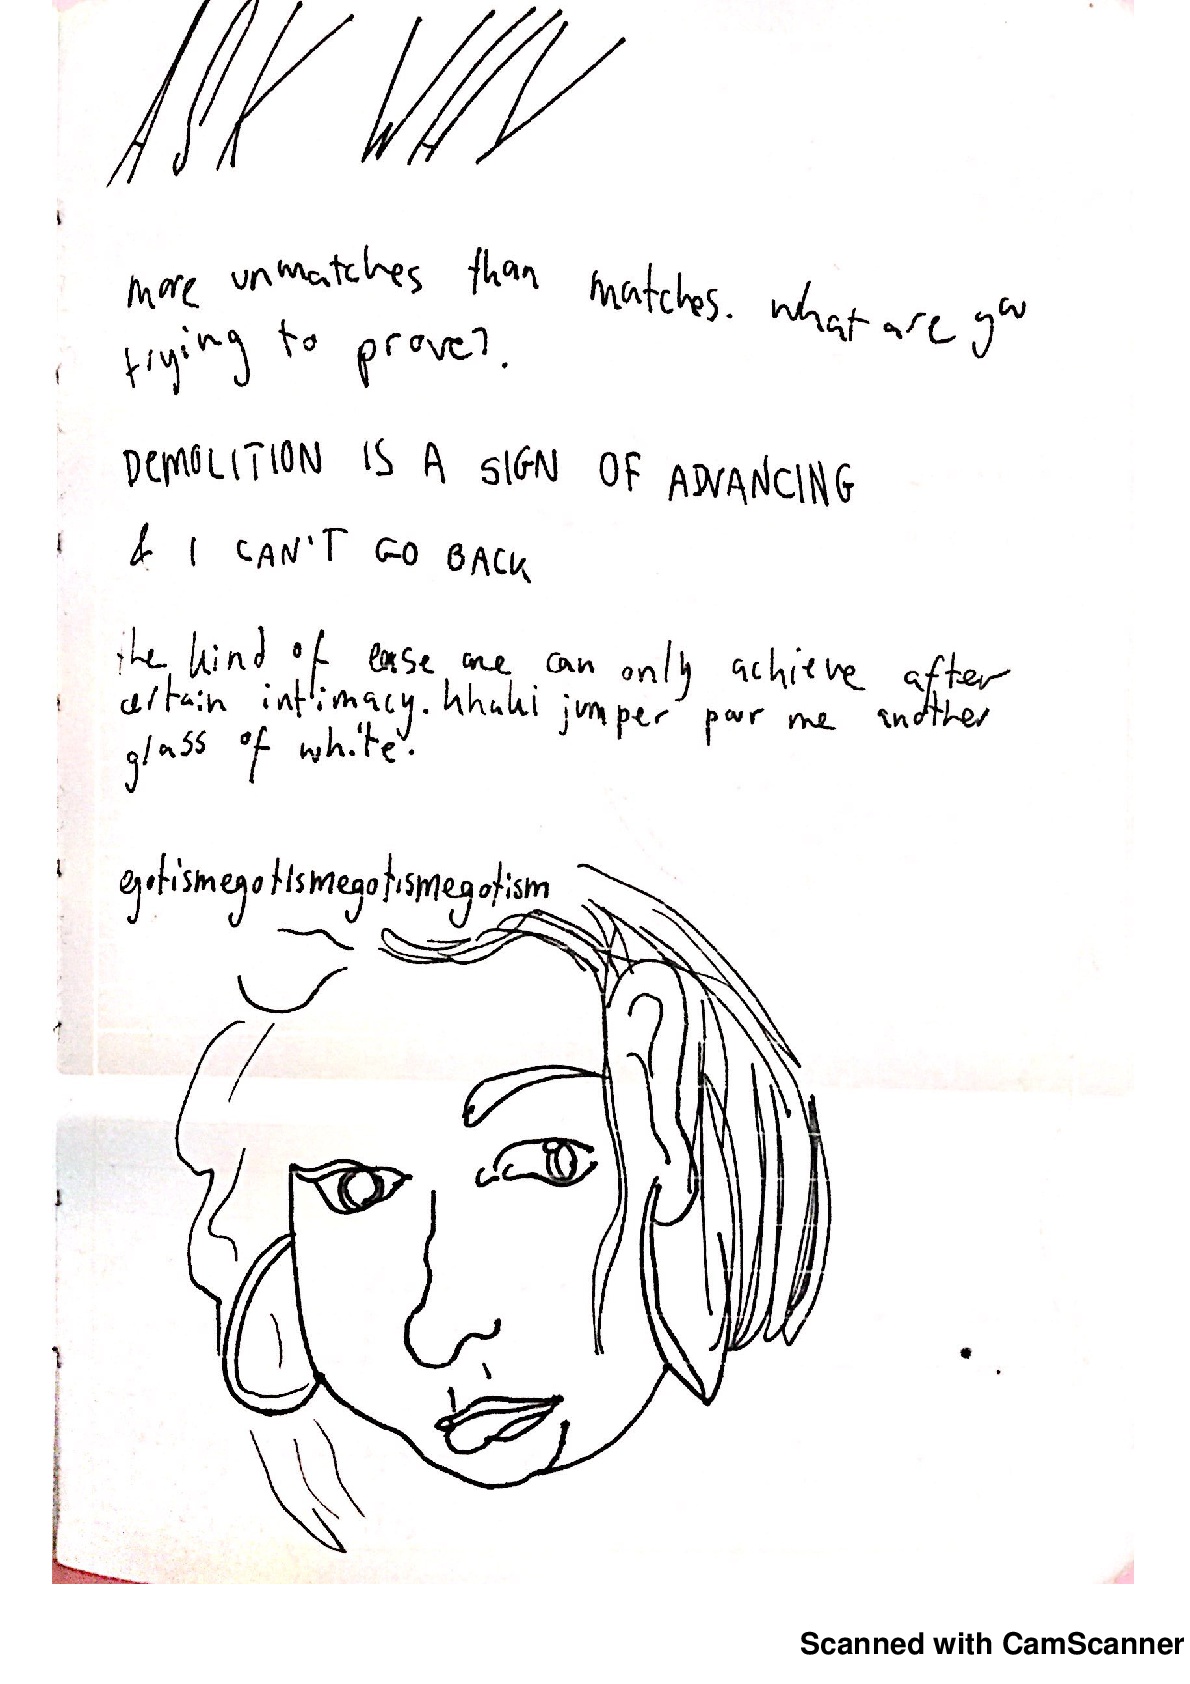 ASK WHY
more unmatches than matches. what are you
trying to prove?.
DEMOLITION IS A SIGN OF ADVANCING
& I CAN'T GO BACK
the kind of ease one can only achieve after
certain intimacy. khaki jumper pour me another
glass of white.
egotismegotismegotismegotism
Scanned with CamScanner